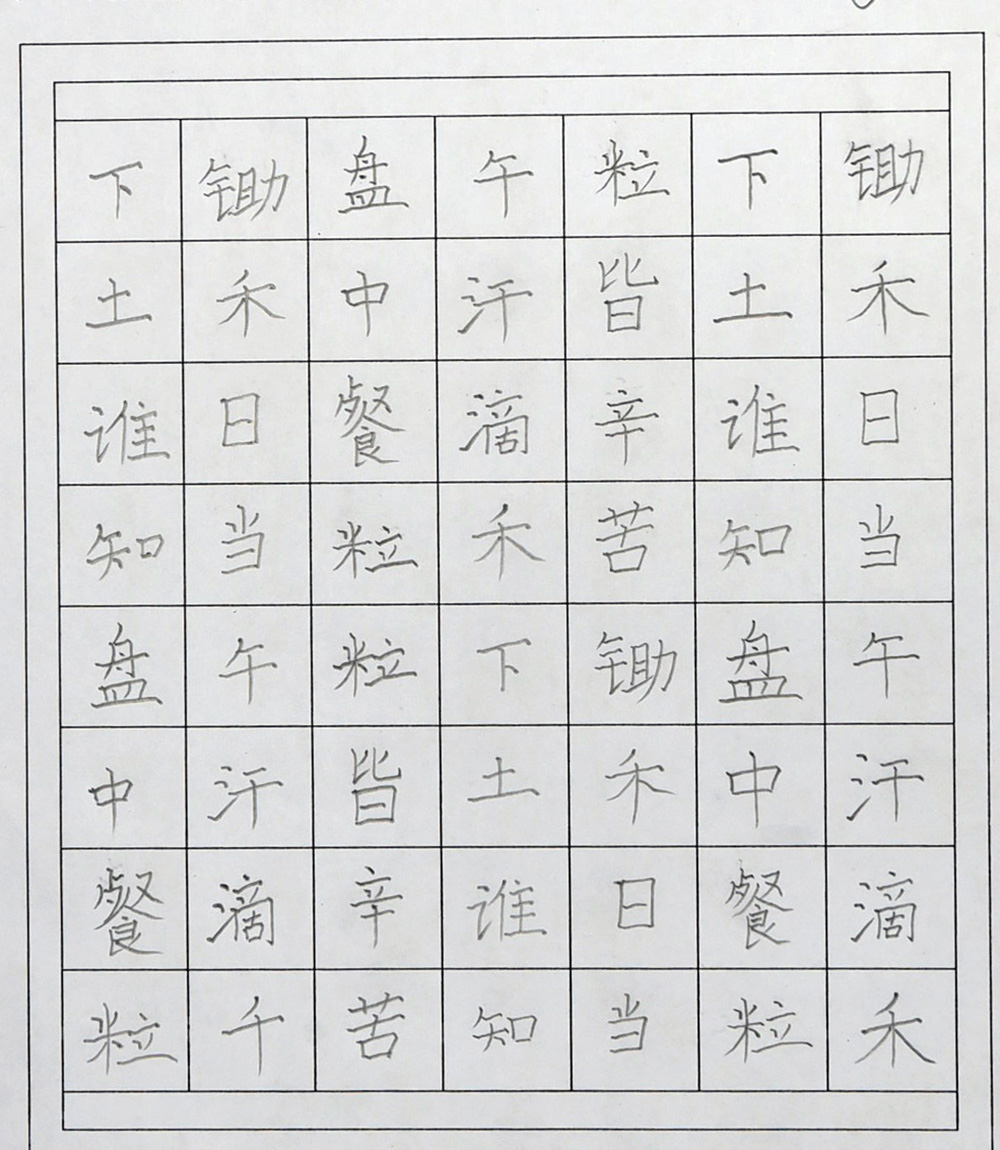 锄禾日当午汗滴禾
下土谁知盘中餐粒
粒皆辛苦锄禾日当
午汗滴禾下土谁知
盘中餐粒粒皆辛苦
锄禾日当午汗滴千
下土谁知盘中餐粒